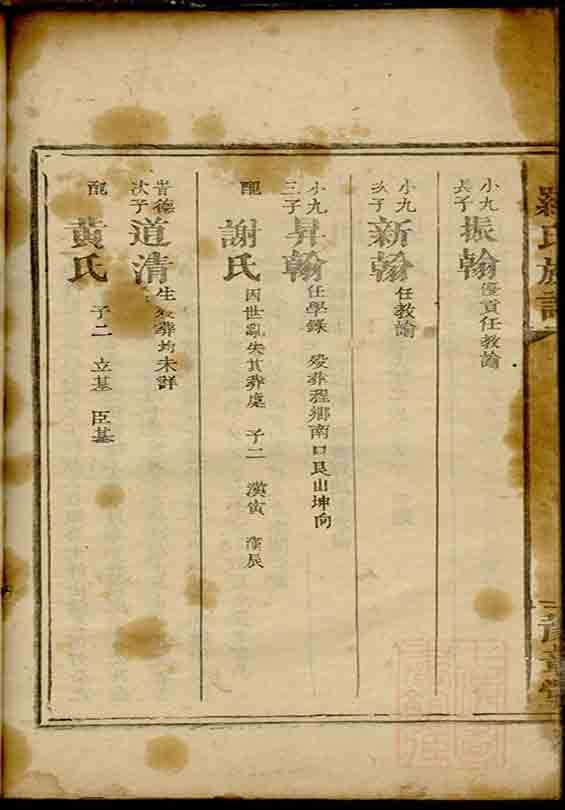 羅氏族譜
豫章堂
小九長子 振翰 優貢任教諭
小九次子 新翰 任教諭
小九三子 昇翰 任學錄 殁葬程鄉南口艮山坤向
配 謝氏 因世亂失其葬處 子二 漢寅 漢辰
貴德次子 道清 生殁葬均未詳
配 黃氏 子二 立基 臣基